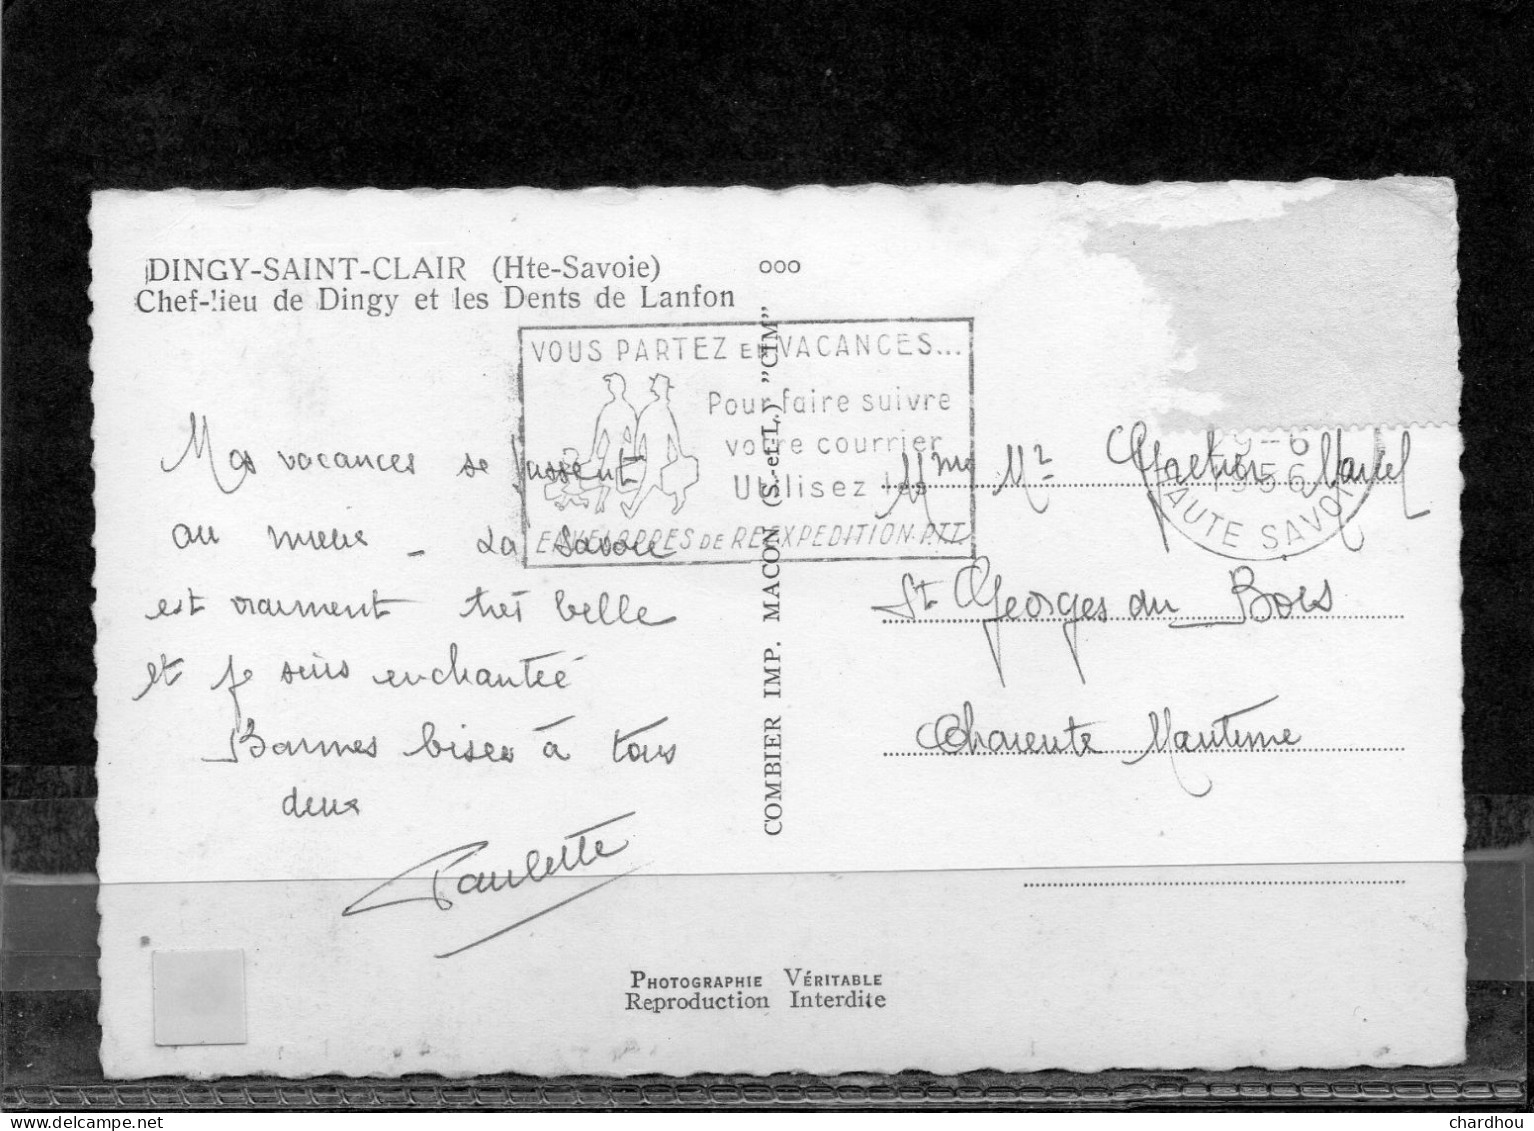 DINGY-SAINT-CLAIR (Hte-Savoie)
Chef-lieu de Dingy et les Dents de Lanfon
ooo
VOUS PARTEZ EN VACANCES...
Pour faire suivre
votre courrier
Utilisez les
ENVELOPPES DE REEXPEDITION PTT
29-6
1956
HAUTE SAVOIE
Mes vacances se passent
au mieux - La Savoie
est vraiment très belle
et je suis enchantée
Bonnes bises à tous
deux
Paulette
COMBIER IMP. MACON (S.-et-L.) "CIM"
Mme Mr Marcel
St Georges du Bois
Charente Maritime
PHOTOGRAPHIE VÉRITABLE
Reproduction Interdite
chardhou